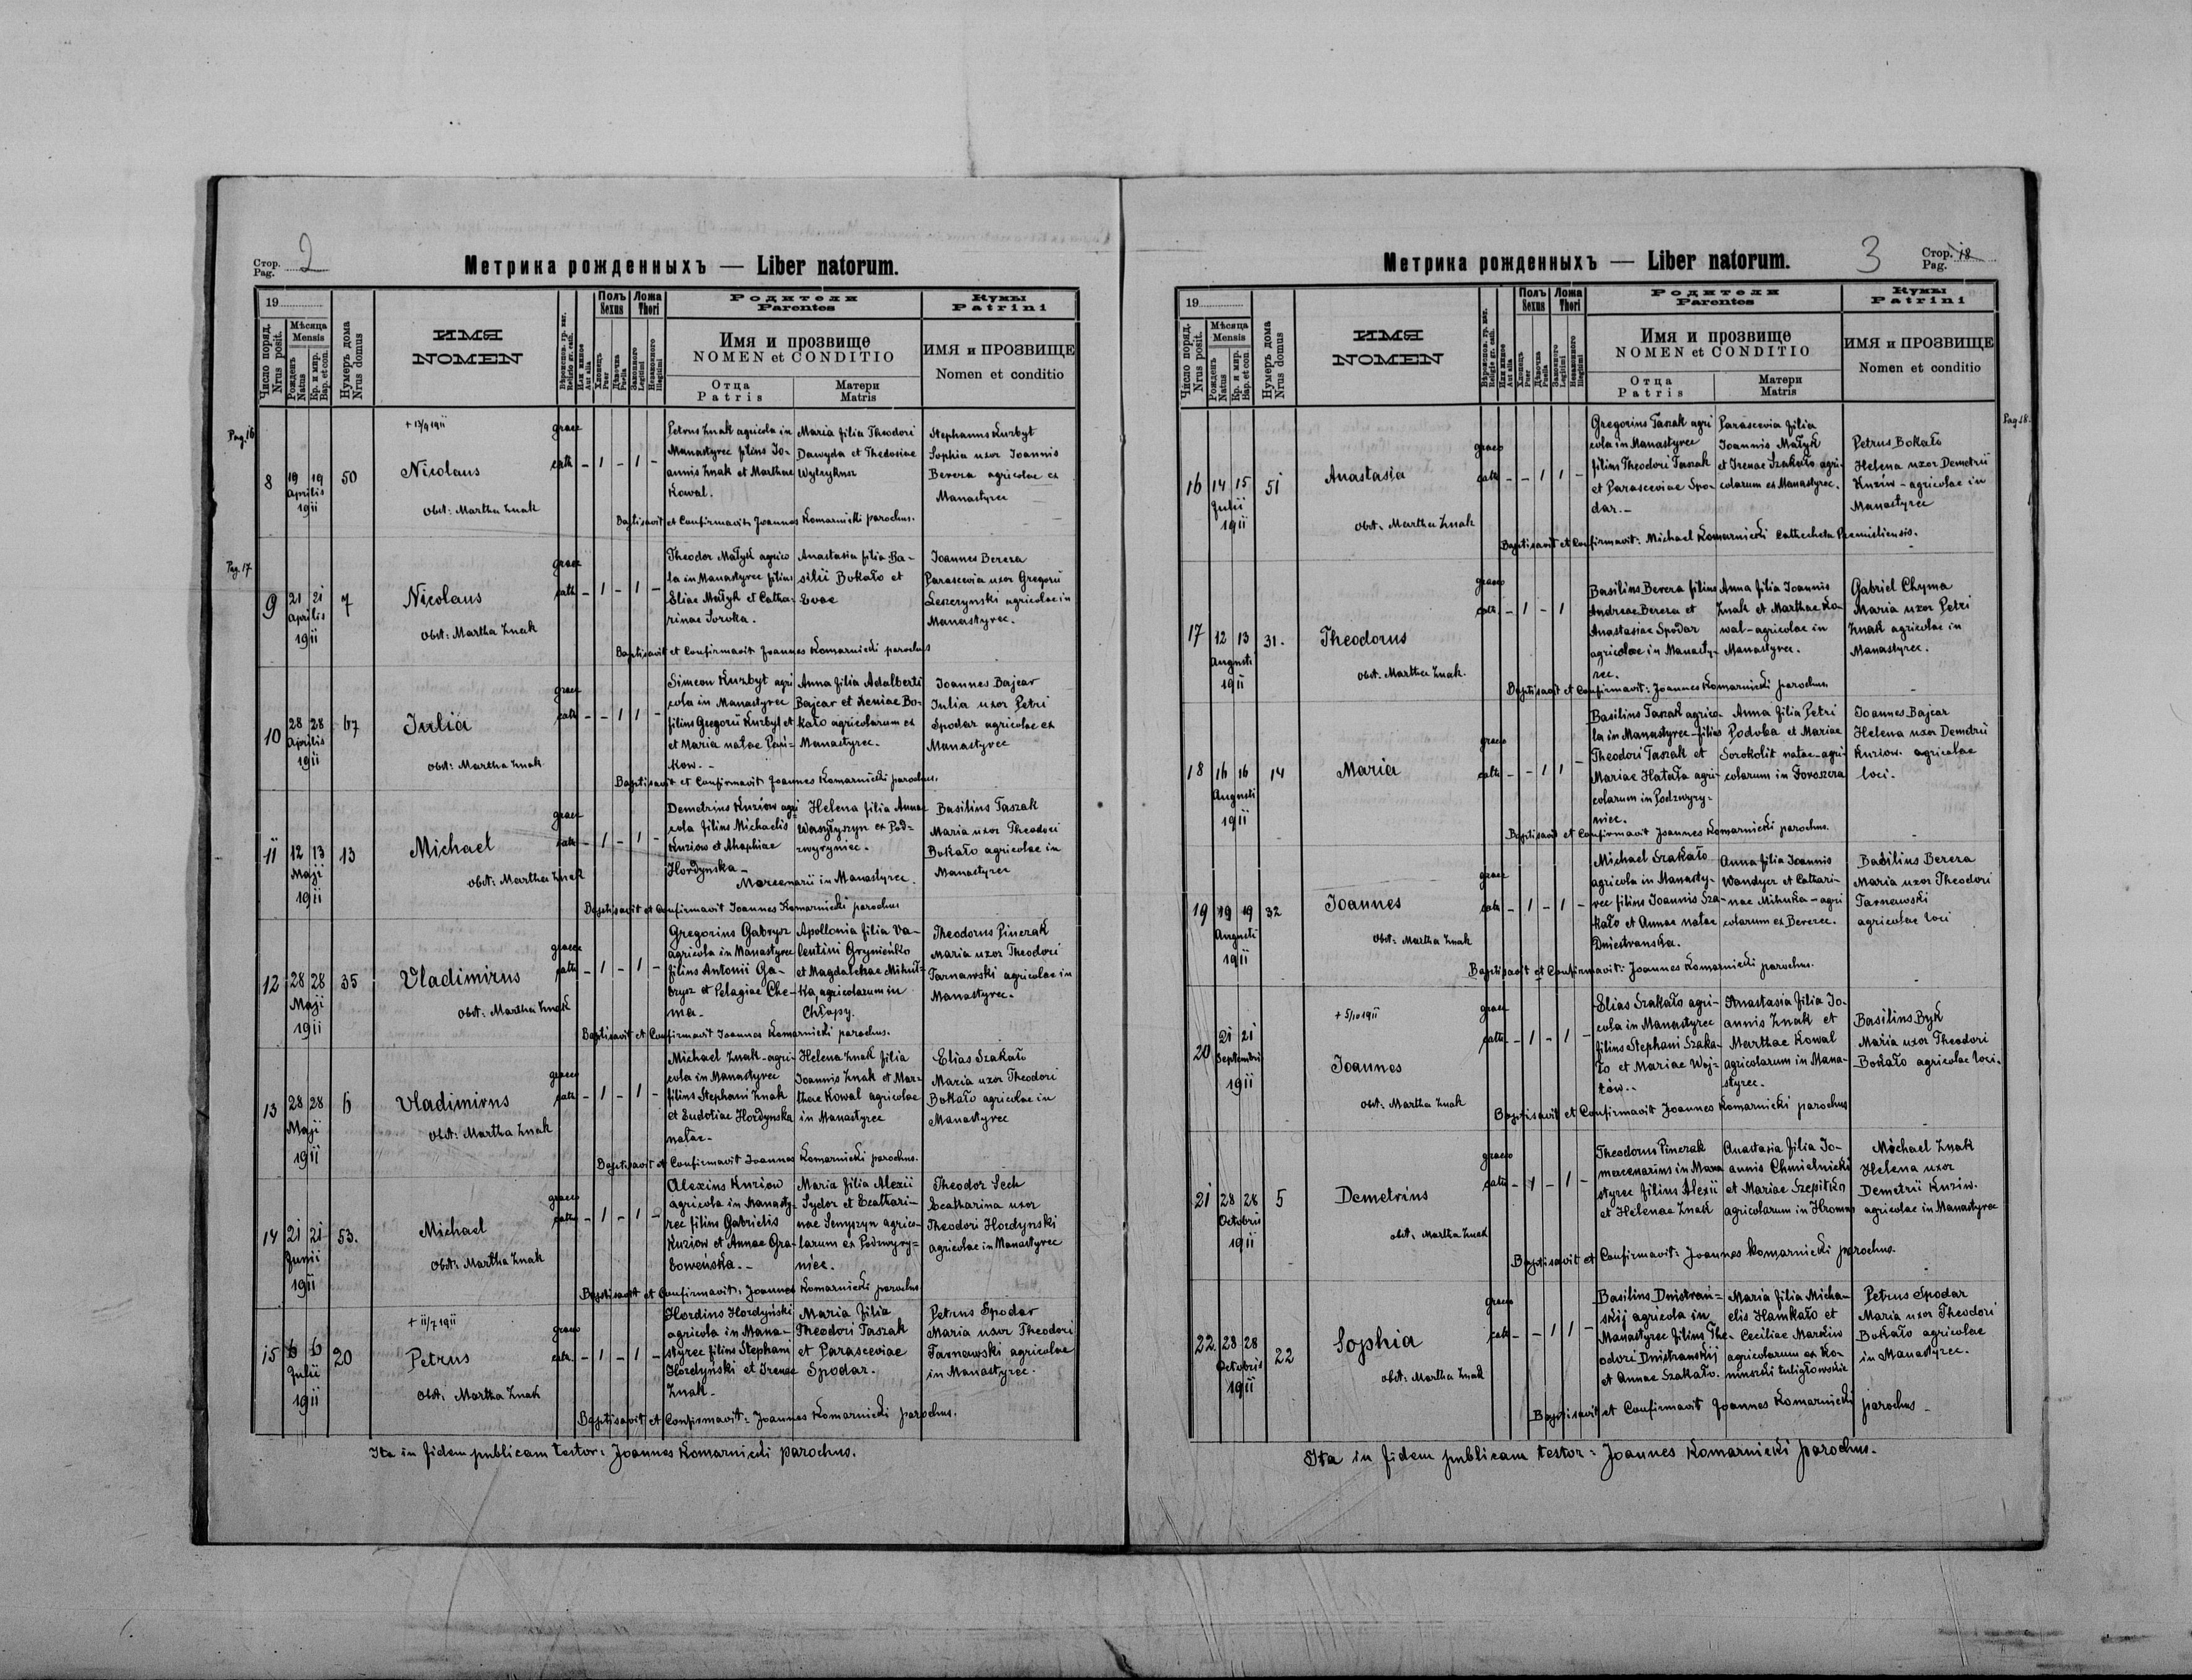 Стор. Pag. 2
Метрика рожденныхъ — Liber natorum.
19
Число поряд. Nrus posit.
Мѣсяца Mensis
Рожденъ Natus
Кр. и мир. Bap. et con.
Нумеръ дома Nrus domus
ИМЯ
NOMEN
Вѣроиспов. гр. кат. Religio gr. cath.
Или инное Aut alia
Полъ Sexus
Хлопецъ Puer
Дѣвочка Puella
Ложа Thori
Законного Legitimi
Незаконного Illegitimi
Родители
Parentes
Имя и прозвище
NOMEN et CONDITIO
Отца
Patris
Матери
Matris
Кумы
Patrini
ИМЯ и ПРОЗВИЩЕ
Nomen et conditio
Pag. 16
8
19 19
Aprilis
1911
50
+ 13/9 1911
Nicolaus
Obst: Martha Znak
graec
cath
- 1 - 1 -
Petrus Znak agricola in
Manastyrec filius Jo-
annis Znak et Marthae
Kowal.
Maria filia Theodori
Dawyda et Thedosiae
Wytrykusz
Stephanus Kurbyt
Sophia uxor Joannis
Bereza agricolae ex
Manastyrec
Baptisavit et Confirmavit Joannes Komarnicki parochus.
Pag. 17
9
21 21
Aprilis
1911
7
Nicolaus
Obst: Martha Znak
graec
cath
- 1 - 1 -
Theodor Małyk agrico
la in Manastyrec filius
Eliae Małyk et Catha-
rinae Soroka.
Anastasia filia Ba-
silii Bokało et
Evae
Joannes Bereza
Parascevia uxor Gregorii
Leszczynski agricolae in
Manastyrec.
Baptisavit et Confirmavit Joannes Komarnicki parochus
10
28 28
Aprilis
1911
67
Julia
Obst: Martha Znak
graec
cath
- - 1 1 -
Simeon Kurbyt agri
cola in Manastyrec
filius Gregorii Kurbyt et
et Maria natae Pań=
kow. -
Anna filia Adalberti
Bajcar et Xeniae Bo-
kało agricolarum ex
Manastyrec.
Joannes Bajcar
Julia uxor Petri
Spodar agricolae ex
Manastyrec
Baptisavit et Confirmavit Joannes Komarnicki parochus.
11
12 13
Maji
1911
13
Michael
Obst: Martha Znak
graec
cath
- 1 - 1 -
Demetrius Kuziow agri
cola filius Michaelis
Kuziow et Ahaphiae
Hordynska -
Helena filia Annae
Wasyłyszyn ex Pod-
zwyryniec.
Mercenarii in Manastyrec.
Basilius Taszak
Maria uxor Theodori
Bokało agricolae in
Manastyrec
Baptisavit et Confirmavit Joannes Komarnicki parochus
12
28 28
Maji
1911
35
Vladimirus
Obst: Martha Znak
graeco
cath
- 1 - 1 -
Gregorius Gabrysz
agricola in Manastyrec
filius Antonii Ga-
brysz et Pelagiae Che-
ma.
Apollonia filia Va-
lentini Grynieńko
et Magdalenae Mihuł=
ka, agricolarum in
Chłopy.
Theodorus Pinczak
Maria uxor Theodori
Tarnawski agricolae in
Manastyrec.
Baptisavit et Confirmavit Joannes Komarnicki parochus.
13
28 28
Maji
1911
6
Vladimirus
Obst: Martha Znak
graeco
cath
- 1 - 1 -
Michael Znak-agri-
cola in Manastyrec
filius Stephani Znak
et Eudotiae Hordynska
natae-
Helena Znak filia
Joannis Znak et Mar-
thae Kowal agricolae
in Manastyrec
Elias Szakało
Maria uxor Theodori
Bokało agricolae in
Manastyrec
Baptisavit et Confirmavit Joannes Komarnicki parochus.
14
21 21
Junii
1911
53.
Michael
Obst: Martha Znak
graeco
cath
- 1 - 1 -
Alexius Kuziow
agricola in Manasty-
rec filius Gabrielis
Kuziow et Annae Gra-
boweńska. -
Maria filia Alexii
Sydor et Ecathari-
nae Senyszyn agrico-
larum ex Podzwyry=
niec.
Theodor Sech
Ecatharina uxor
Theodori Hordynski
agricolae in Manastyrec
Baptisavit et Confirmavit: Joannes Komarnicki parochus
15
6 6
Julii
1911
20
+ 11/7 1911
Petrus
Obst: Martha Znak
graeco
cath.
- 1 - 1 -
Hordius Hordyński
agricola in Mana-
styrec filius Stephani
Hordyński et Irenae
Znak-
Maria filia
Theodori Taszak
et Parasceviae
Spodar.
Petrus Spodar
Maria uxor Theodori
Tarnawski agricolae
in Manastyrec.
Baptisavit et Confirmavit: Joannes Komarnicki parochus.
Ita in fidem publicam testor: Joannes Komarnicki parochus.
Метрика рожденныхъ — Liber natorum.
3
Стор. Pag. 18
19
Число поряд. Nrus posit.
Мѣсяца Mensis
Рожденъ Natus
Кр. и мир. Bap. et con.
Нумеръ дома Nrus domus
ИМЯ
NOMEN
Вѣроиспов. гр. кат. Religio gr. cath.
Или инное Aut alia
Полъ Sexus
Хлопецъ Puer
Дѣвочка Puella
Ложа Thori
Законного Legitimi
Незаконного Illegitimi
Родители
Parentes
Имя и прозвище
NOMEN et CONDITIO
Отца
Patris
Матери
Matris
Кумы
Patrini
ИМЯ и ПРОЗВИЩЕ
Nomen et conditio
Pag 18.
16
14 15
Julii
1911
51
Anastasia
Obst: Martha Znak
graeco
cath
- - 1 1 -
Gregorius Taszak agri
cola in Manastyrec
filius Theodori Taszak
et Parasceviae Spo-
dar.-
Parascevia filia
Joannis Małyk
et Irenae Szakało agri-
colarum ex Manastyrec.
Petrus Bokało
Helena uxor Demetrii
Kuziw - agricolae in
Manastyrec
Baptisavit et Confirmavit: Michael Komarnicki Catecheta Premisliensis.
17
12 13
Augusti
1911
31.
Theodorus
Obst: Martha Znak.
graeco
cath
- 1 - 1
Basilius Bereza filius
Andreae Bereza et
Anastasiae Spodar
agricolae in Manasty-
rec.
Anna filia Joannis
Znak et Marthae Ko-
wal-agricolae in
Manastyrec.
Gabriel Chyma
Maria uxor Petri
Znak agricolae in
Manastyrec.
Baptisavit et Confirmavit: Joannes Komarnicki parochus.
18
16 16
Augusti
1911
14
Maria
graeco
cath
- - 1 1 -
Basilius Taszak agrico-
la in Manastyrec-filius
Theodori Taszak et
Mariae Hatała agri-
colarum in Podzwyry-
niec.
Anna filia Petri
Podoba et Mariae
Sorokolit natae-agri-
colarum in Foroszcza
Joannes Bajcar
Helena uxor Demetrii
Kuziow. agricolae
loci.
Baptisavit et Confirmavit Joannes Komarnicki parochus.
19
19 19
Augusti
1911
32
Joannes
Obst: Martha Znak
graec
cath
- 1 - 1 -
Michael Szakało
agricola in Manasty-
rec filius Joannis Sza-
kało et Annae natae
Dniestranska.
Anna filia Joannis
Wandycz et Cathari-
nae Mihułka-agri
colarum ex Berezec.
Basilius Bereza
Maria uxor Theodori
Tarnawski
agricolae loci
Baptisavit et Confirmavit: Joannes Komarnicki parochus.
20
21 21
Septembri
1911
+ 5/10 1911
Joannes
Obst: Martha Znak
graec
cath
- 1 - 1 -
Elias Szakało agri-
cola in Manastyrec
filius Stephani Szaka-
ło et Mariae Woj-
tów.-
Anastasia filia Jo-
annis Znak et
Marthae Kowal
agricolarum in Mana-
styrec.
Basilius Byk
Maria uxor Theodori
Bokało agricolae loci.
Baptisavit et Confirmavit Joannes Komarnicki parochus
21
28 28
Octobris
1911
5
Demetrius
obst: Martha Znak
graeco
cath
- 1 - 1 -
Theodorus Pinczak
mercenarius in Mana
styrec filius Alexii
et Helenae Znak
Anastasia filia Jo-
annis Chmielnicki
et Mariae Szepitko
agricolarum in Hromno
Michael Znak
Helena uxor
Demetrii Kuziw.
agricolae in Manastyrec
Baptisavit et Confirmavit: Joannes Komarnicki parochus.
22.
28 28
Octobris
1911
22
Sophia
obst: Martha Znak
graeco
cath
- - 1 1 -
Basilius Dnistrań=
skij agricola in
Manastyrec filius The-
odori Dnistranskij
et Annae Szakało.
Maria filia Micha-
elis Hamkało et
Ceciliae Markiw
agricolarum ex Ko-
niuszki tuligłowskie
Petrus Spodar
Maria uxor Theodori
Bokało agricolae
in Manastyrec.
Baptisavit et Confirmavit Joannes Komarnicki parochus -
Ita in fidem publicam testor: Joannes Komarnicki parochus.